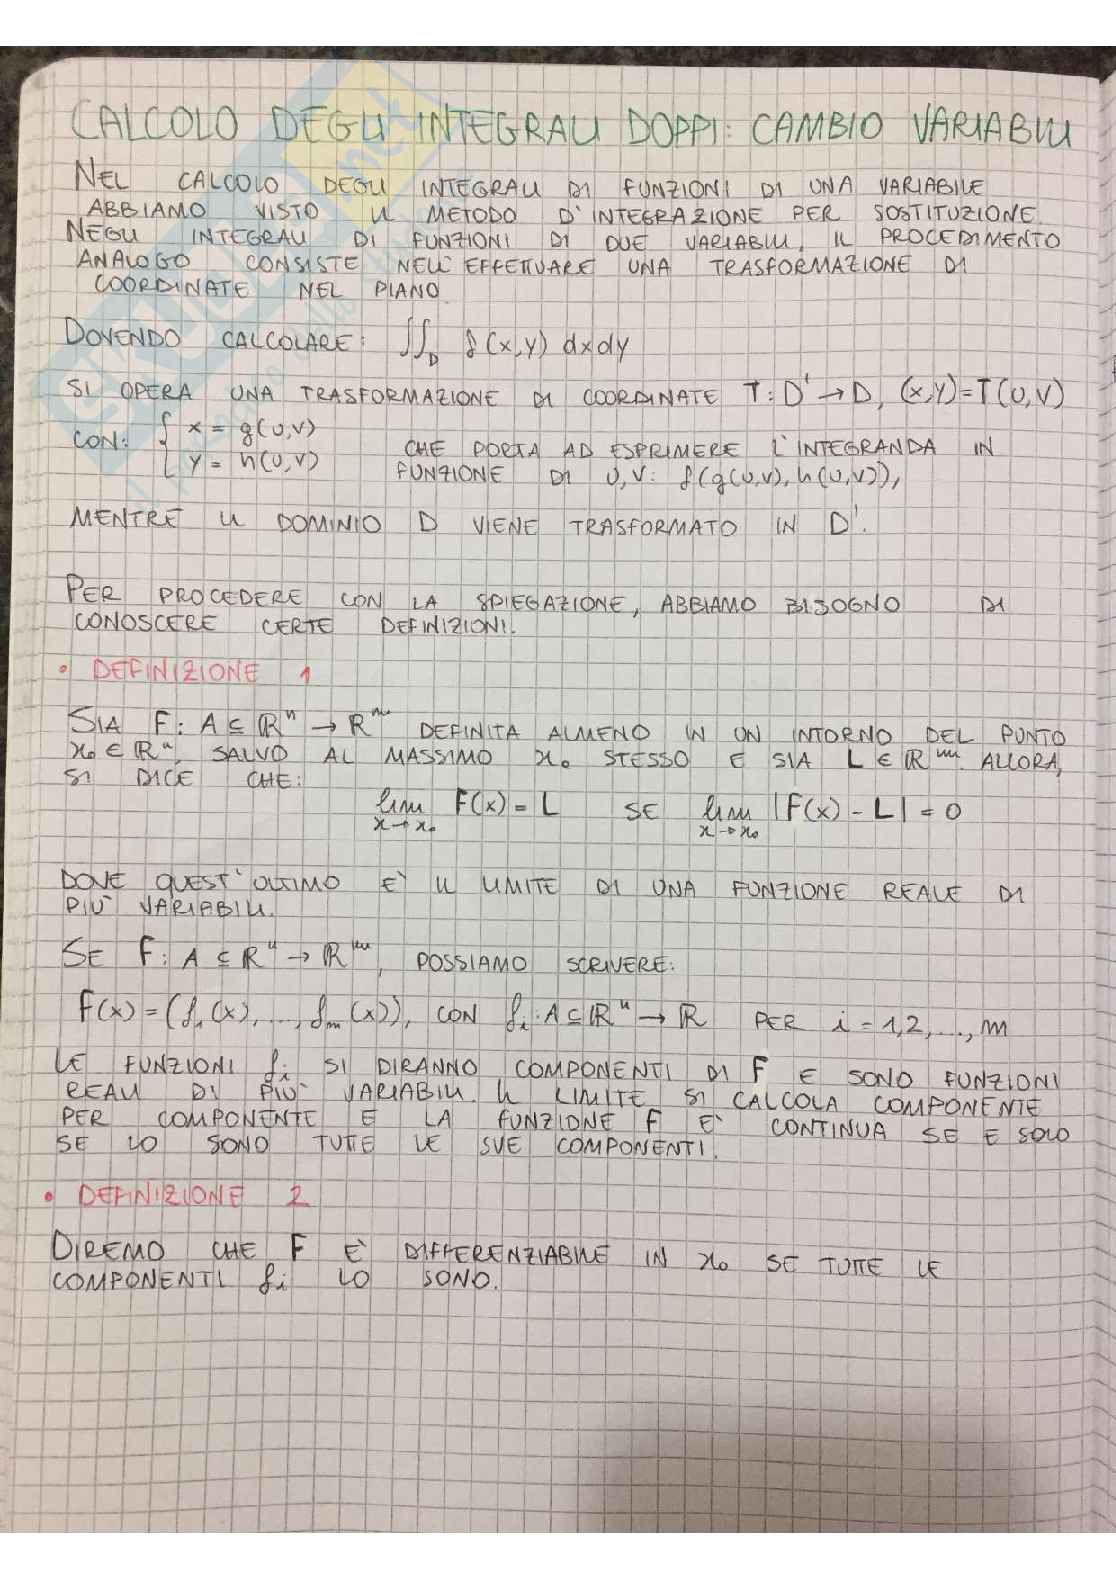 CALCOLO DEGLI INTEGRALI DOPPI: CAMBIO VARIABILI
NEL CALCOLO DEGLI INTEGRALI DI FUNZIONI DI UNA VARIABILE
ABBIAMO VISTO IL METODO D'INTEGRAZIONE PER SOSTITUZIONE.
NEGLI INTEGRALI DI FUNZIONI DI DUE VARIABILI, IL PROCEDIMENTO
ANALOGO CONSISTE NELL'EFFETTUARE UNA TRASFORMAZIONE DI
COORDINATE NEL PIANO.
DOVENDO CALCOLARE: ∬_D f(x,y) dxdy
SI OPERA UNA TRASFORMAZIONE DI COORDINATE T: D' → D, (x,y)=T(U,V)
CON: { x = g(U,V)
y = h(U,V) CHE PORTA AD ESPRIMERE L'INTEGRANDA IN
FUNZIONE DI U,V: f(g(U,V), h(U,V)),
MENTRE IL DOMINIO D VIENE TRASFORMATO IN D'.
PER PROCEDERE CON LA SPIEGAZIONE, ABBIAMO BISOGNO DI
CONOSCERE CERTE DEFINIZIONI.
• DEFINIZIONE 1
SIA F: A ⊆ ℝⁿ → ℝᵐ DEFINITA ALMENO IN UN INTORNO DEL PUNTO
x₀ ∈ ℝⁿ, SALVO AL MASSIMO x₀ STESSO E SIA L ∈ ℝᵐ. ALLORA,
SI DICE CHE:
lim F(x) = L SE lim |F(x) - L| = 0
x→x₀ x→x₀
DOVE QUEST'ULTIMO E' IL LIMITE DI UNA FUNZIONE REALE DI
PIU' VARIABILI.
SE F: A ⊆ ℝⁿ → ℝᵐ, POSSIAMO SCRIVERE:
F(x) = (f₁(x), ..., fₘ(x)), CON fᵢ: A ⊆ ℝⁿ → ℝ PER i = 1,2,...,m
LE FUNZIONI fᵢ SI DIRANNO COMPONENTI DI F E SONO FUNZIONI
REALI DI PIU' VARIABILI. IL LIMITE SI CALCOLA COMPONENTE
PER COMPONENTE E LA FUNZIONE F E' CONTINUA SE E SOLO
SE LO SONO TUTTE LE SUE COMPONENTI.
• DEFINIZIONE 2
DIREMO CHE F E' DIFFERENZIABILE IN x₀ SE TUTTE LE
COMPONENTI fᵢ LO SONO.